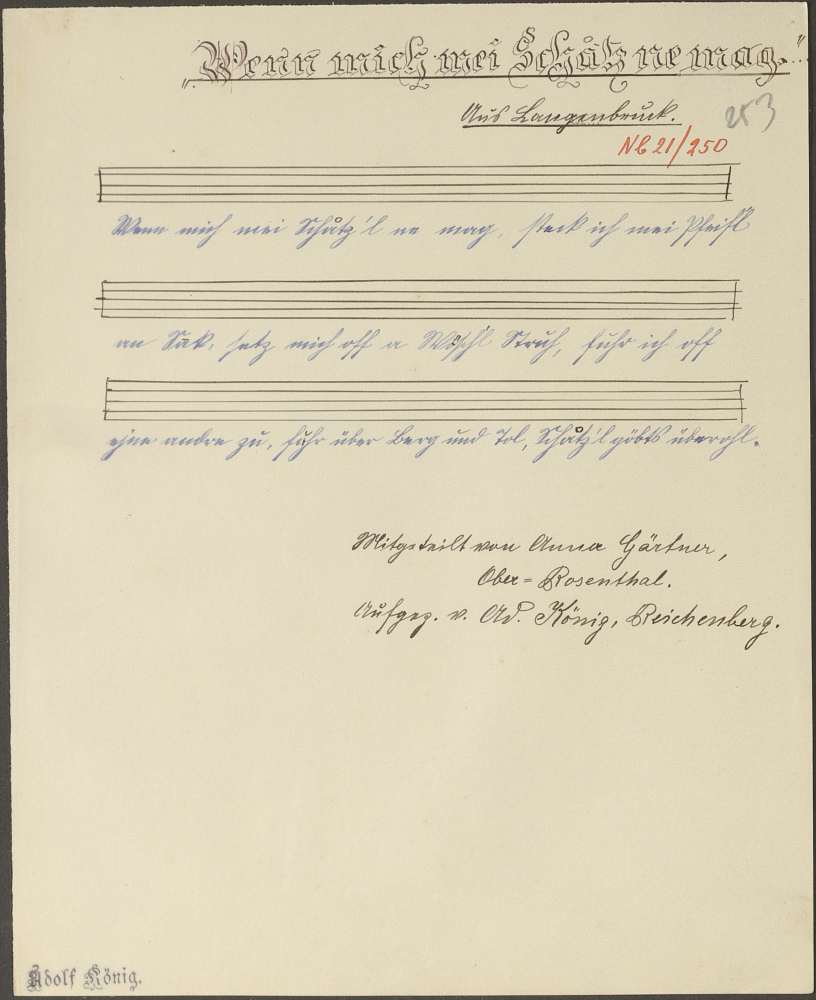 „Wenn mich mei Schåtz ne mag..."
Aus Langenbruck.
253
Nb 21/250
Wenn mich mei Schåtz'l ne mag, steck ich mei Pfeifl
an Sak, setz mich off a Wöschl Struh, fuhr ich off
ejne andre zu, fuhr über Berg und Tol, Schåtz'l göbts überohl.
Mitgeteilt von Anna Gärtner,
Ober=Rosenthal.
Aufgez. v. Ad. König, Reichenberg.
Adolf König.